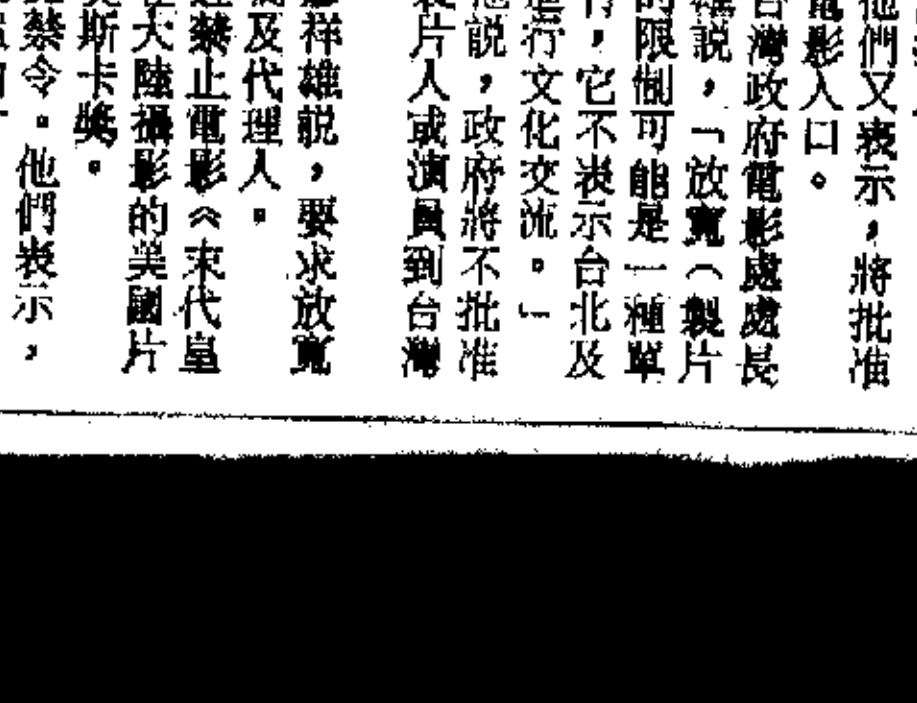 他們又表示，將批准
電影入口。
台灣政府電影處處長
雄説，「放寬（製片
的限制可能是一種單
，它不表示台北及
進行文化交流。」
他説，政府將不批准
製片人或演員到台灣
廖祥雄説，要求放寬
及代理人。
禁止電影《末代皇
大陸攝影的美國片
奧斯卡獎。
禁令。他們表示，